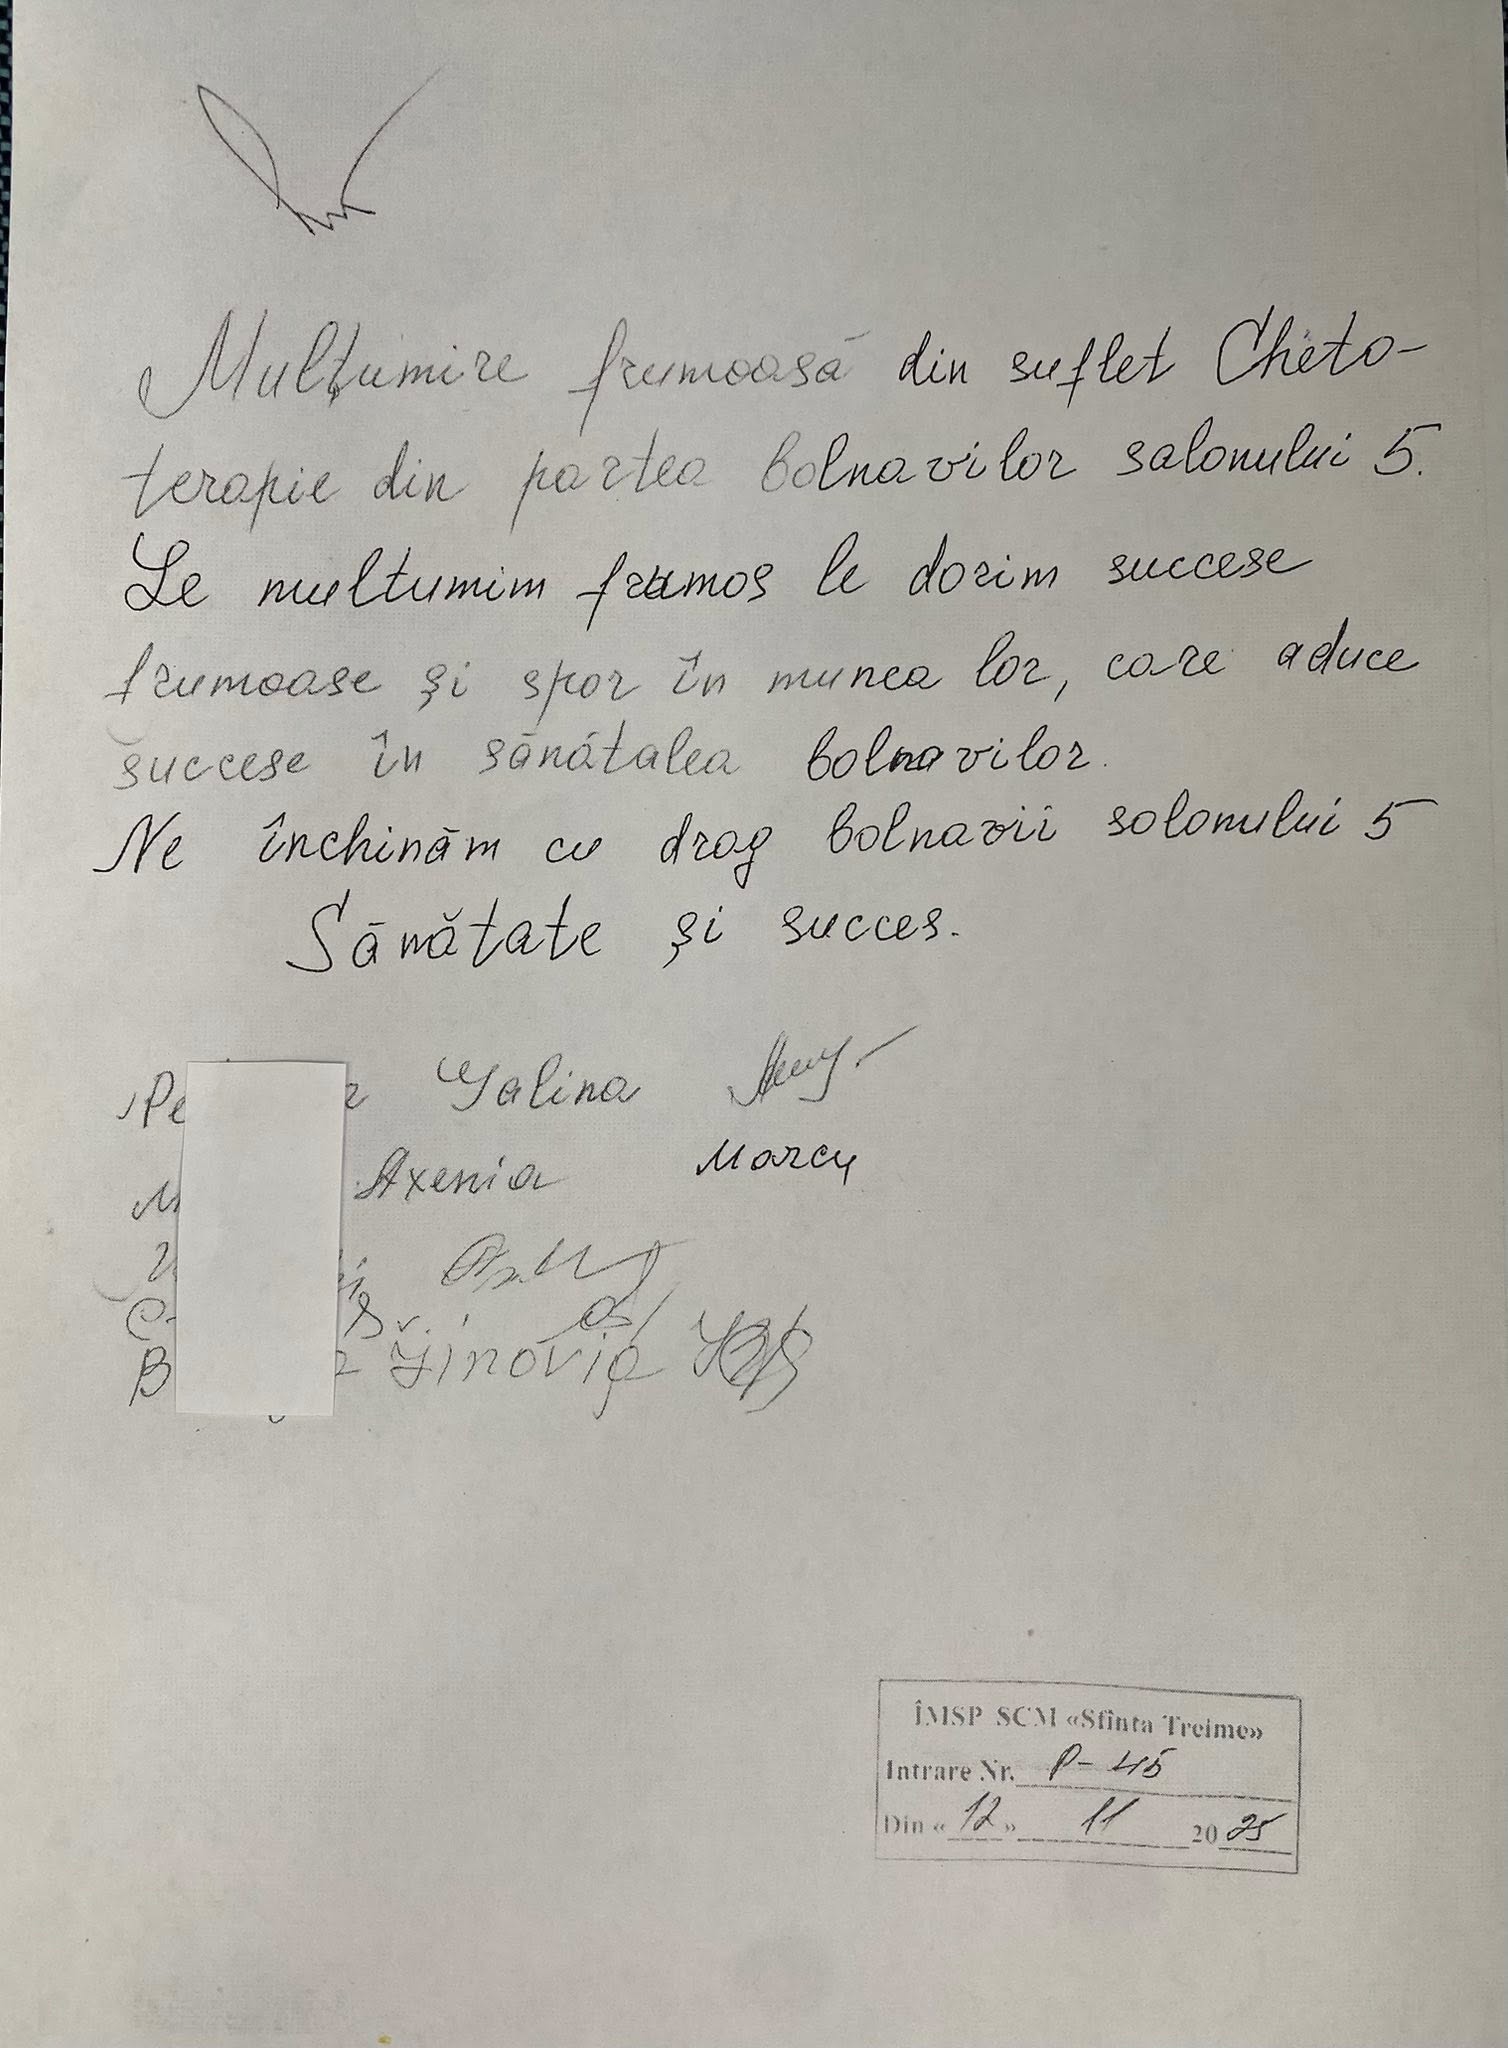 Mulțumire frumoasă din suflet Cheto-
terapie din partea bolnavilor salonului 5.
Le multumim frumos le dorim succese
frumoase și spor în munca lor, care aduce
succese în sănătalea bolnavilor.
Ne închinăm cu drag bolnavii salonului 5
Sănătate și succes.
Galina
Axenia Marcu
ÎMSP SCM «Sfînta Treime»
Intrare Nr. P-45
Din «12» 11 2025